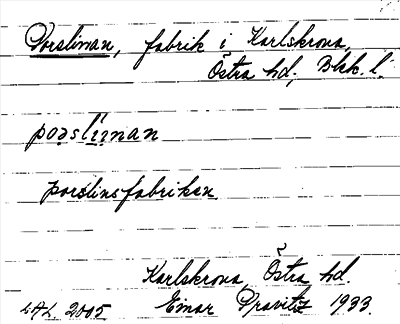 Porslinan, fabrik i Karlskrona,
Östra hd, Blek. l.
poəslı̣ṇan
porslinsfabriken
Karlskrona, Östra hd.
LAL 2005 Einar Pravitz 1933.